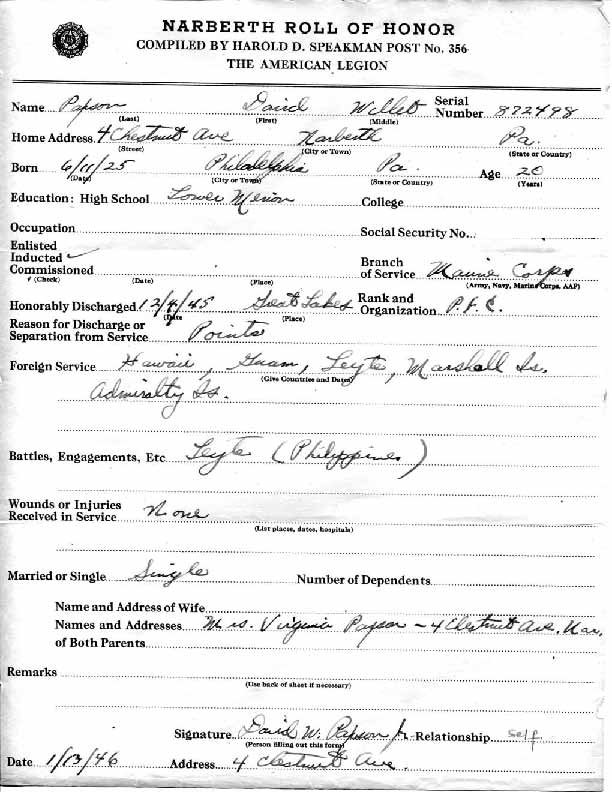 NARBERTH ROLL OF HONOR
COMPILED BY HAROLD D. SPEAKMAN POST No. 356
THE AMERICAN LEGION
Name Papson David Willet Serial Number 872498
(Last) (First) (Middle)
Home Address 4 Chestnut Ave Narberth Pa.
(Street) (City or Town) (State or Country)
Born 6/11/25 Philadelphia Pa. Age 20
(Date) (City or Town) (State or Country) (Years)
Education: High School Lower Merion College
Occupation Social Security No.
Enlisted
Inducted ✓ Branch
Commissioned of Service Marine Corps
(Check) (Date) (Place) (Army, Navy, Marine Corps, AAF)
Honorably Discharged 12/4/45 Great Lakes Rank and Organization P.F.C.
(Date) (Place)
Reason for Discharge or
Separation from Service Points
Foreign Service Hawaii, Guam, Leyte, Marshall Is.
(Give Countries and Dates)
Admiralty Is.
Battles, Engagements, Etc Leyte (Philippines)
Wounds or Injuries
Received in Service None
(List places, dates, hospitals)
Married or Single Single Number of Dependents
Name and Address of Wife
Names and Addresses Mrs. Virginia Papson - 4 Chestnut Ave. Nar.
of Both Parents
Remarks
(Use back of sheet if necessary)
Signature David W. Papson Jr. Relationship self
(Person filling out this form)
Date 1/13/46 Address 4 Chestnut Ave